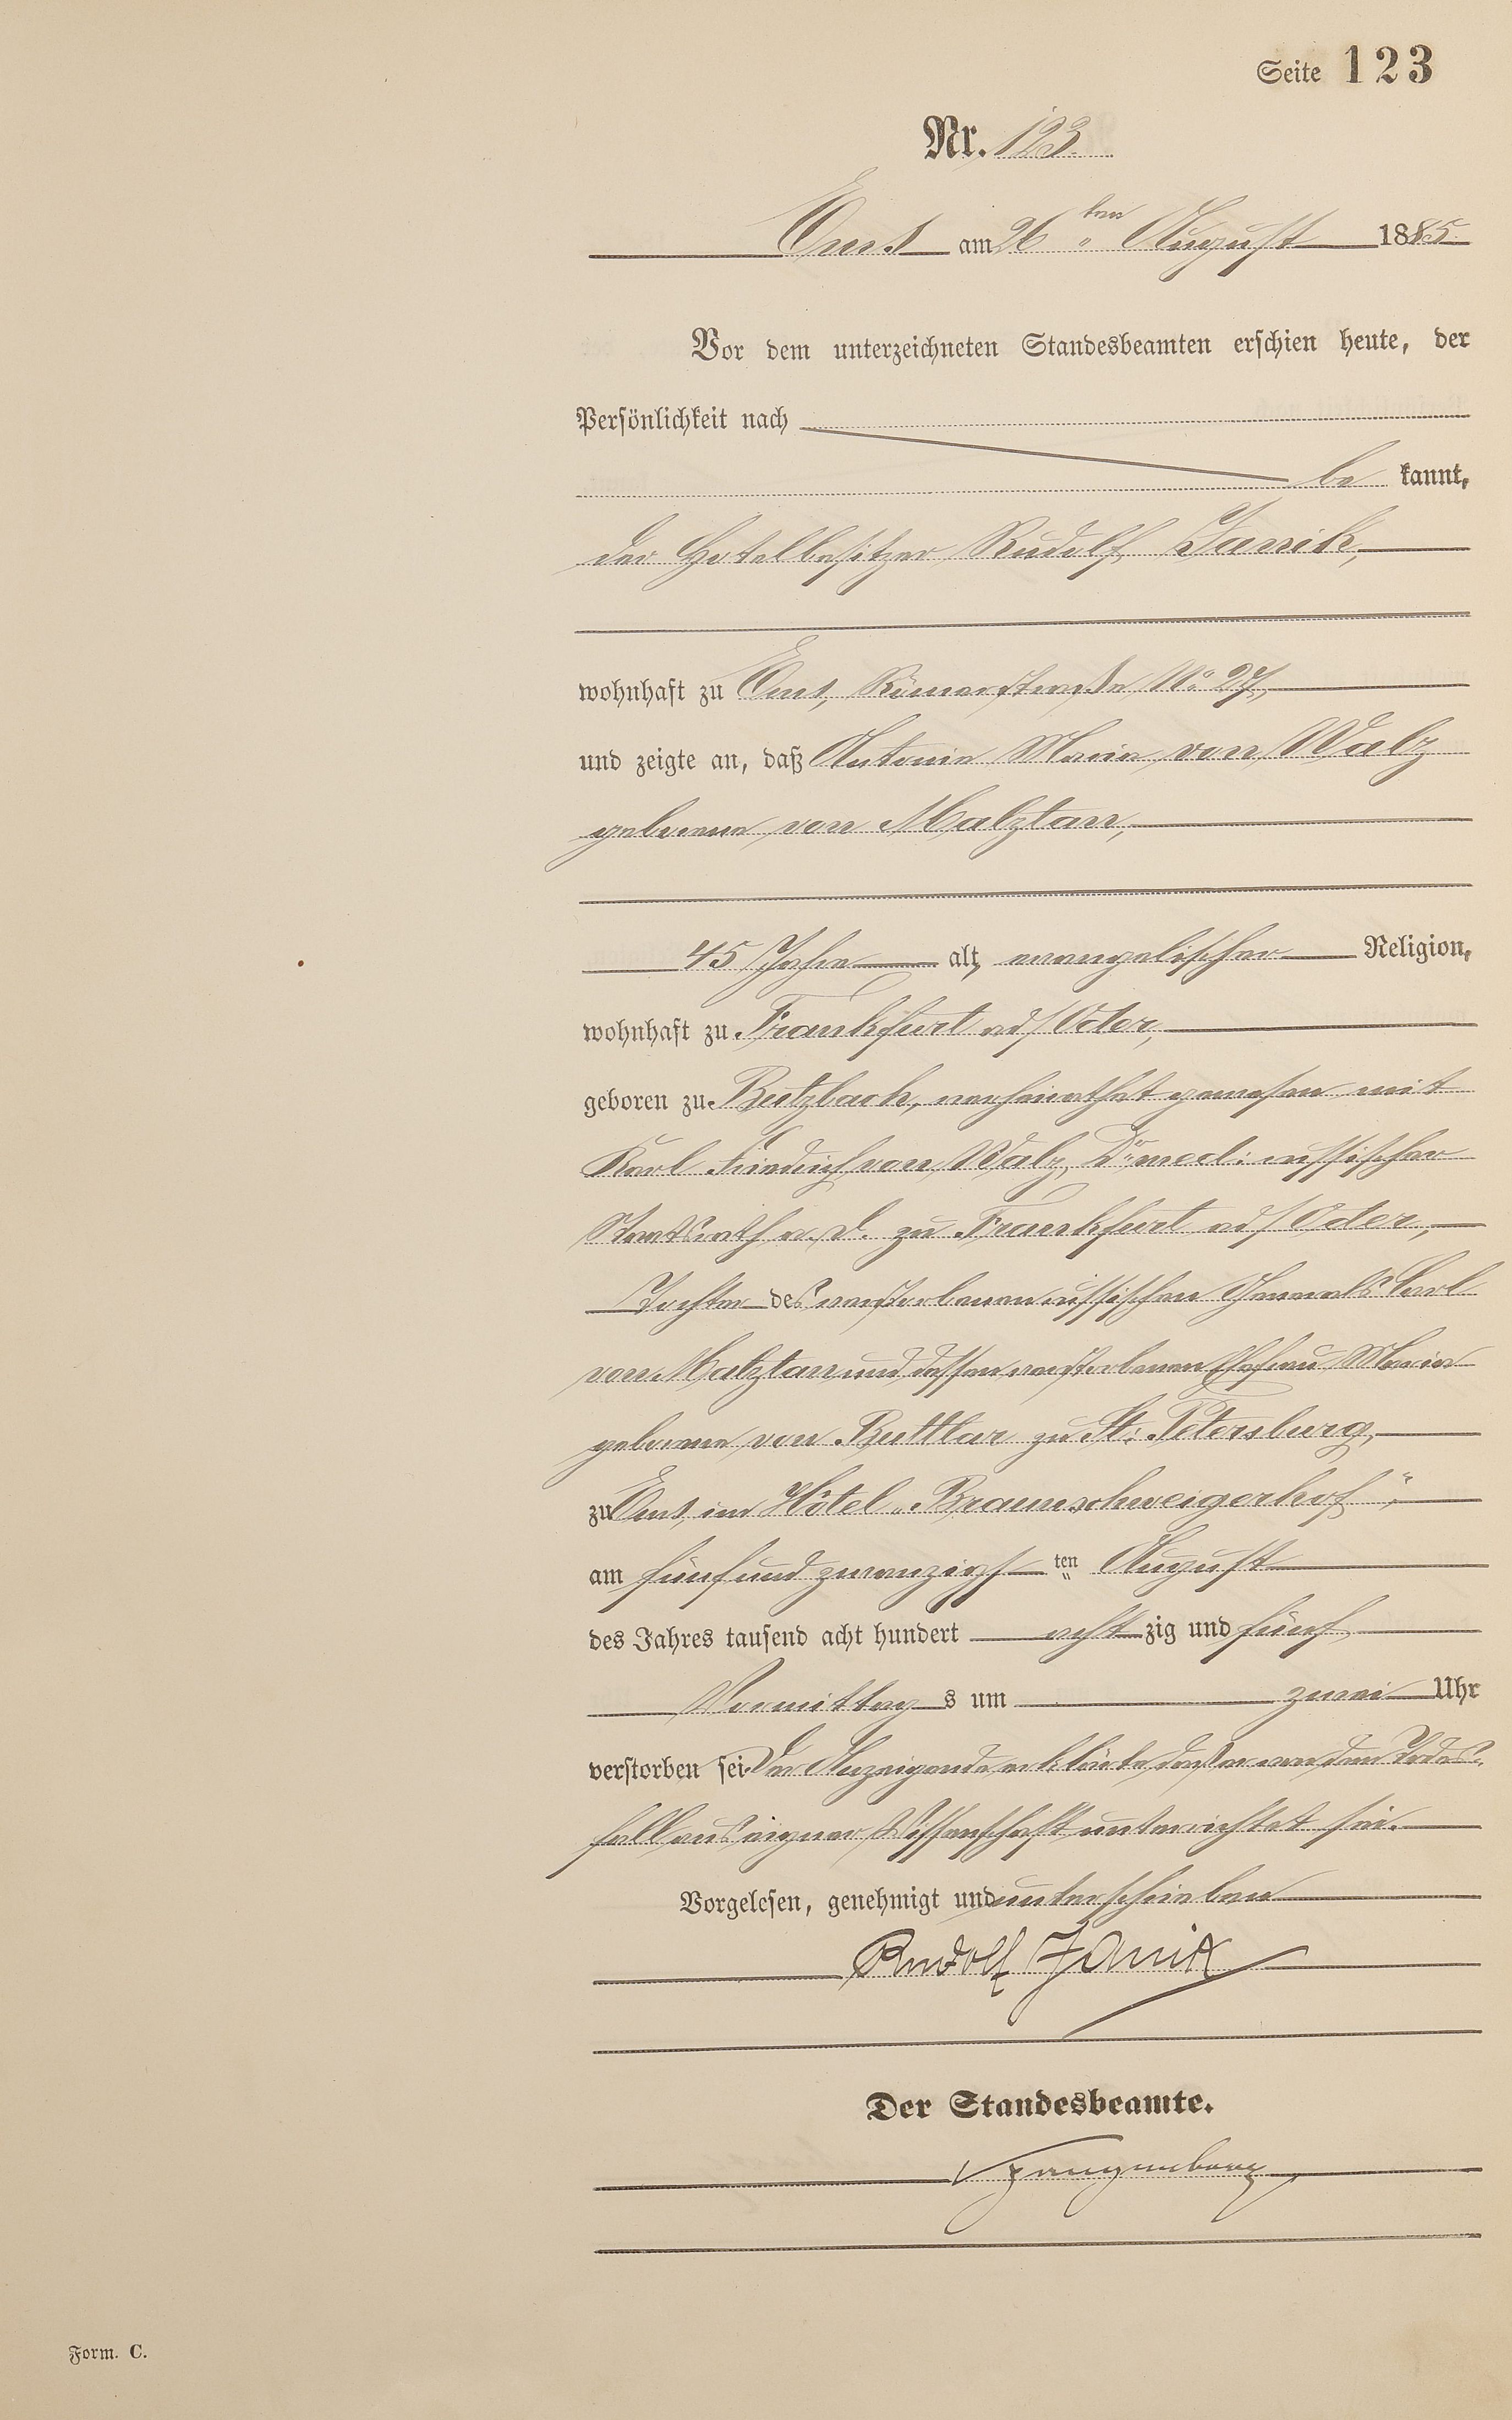 Seite 123
Nr. 123.
Ems am 26ten August 1885.
Vor dem unterzeichneten Standesbeamten erschien heute, der
Persönlichkeit nach
be kannt,
der Hotelbesitzer Rudolf Janik,
wohnhaft zu Ems, Römerstraße No 27,
und zeigte an, daß Antonie Marie von Walz
geborene von Malztan,
45 Jahre alt, evangelischer Religion,
wohnhaft zu Frankfurt ad/Oder,
geboren zu Butzbach, verheirathet gewesen mit
Karl Friedrich von Walz, Dr. med: russischer
Staatsrath a. D. zu Frankfurt ad/Oder,
Tochter des verstorbenen russischen Generals Carl
von Malztan und dessen verstorbenen Ehefrau Maria
geborene von Buttlar zu St: Petersburg,
zu Ems, im Hôtel „Braunschweigerhof“,
am fünfundzwanzigsten August
des Jahres tausend acht hundert achtzig und fünf
Vormittags um zwei Uhr
verstorben sei. Der Anzeigende erklärte, daß er von dem Todes-
fall aus eigner Wissenschaft unterrichtet sei.
Vorgelesen, genehmigt und unterschrieben
Rudolf Janik
Der Standesbeamte.
Form. C.